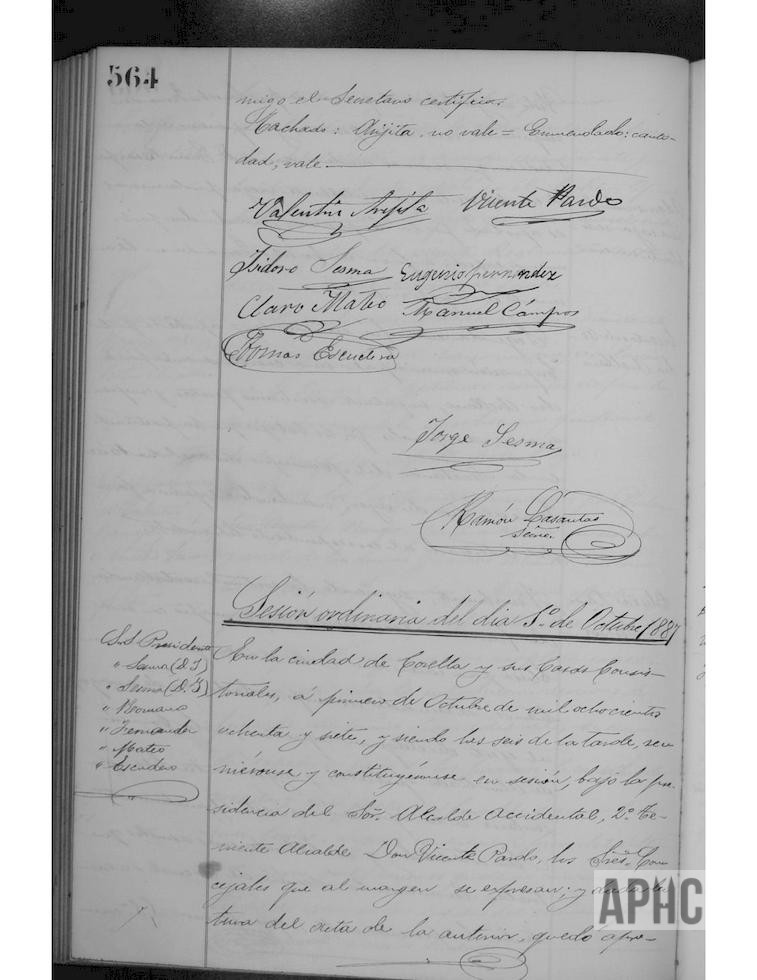 564
migo el Secretario certifico.
Tachado: Arijita, no vale = Enmendado: canti-
dad, vale.
Valentín Arijita Vicente Pardo
Isidoro Sesma Eugenio Fernandez
Claro Mateo Manuel Cámpos
Tomas Escudero
Jorge Sesma
Ramón Casantas
Sesión ordinaria del dia 1º de Octubre 1887
S.S Presidente
" Sesma (D. J)
" Sesma (D. I)
" Romano
" Fernandez
" Mateo
" Escudero
En la ciudad de Corella y sus Casas Consis-
toriales, á primero de Octubre de mil ochocientos
ochenta y siete, y siendo las seis de la tarde, reu-
niéronse y constituyéronse en sesión, bajo la pre-
sidencia del Sor. Alcalde Accidental, 2º Te-
niente Alcalde Don Vicente Pardo, los Sres. Con-
cejales que al margen se expresan; y dada lec-
tura del acta de la anterior, quedo apro-
APHC